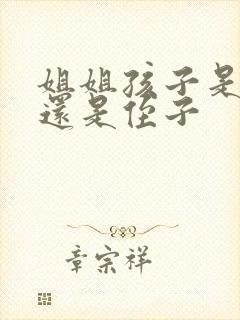 姐姐孩子是
還是侄子
章宗祥